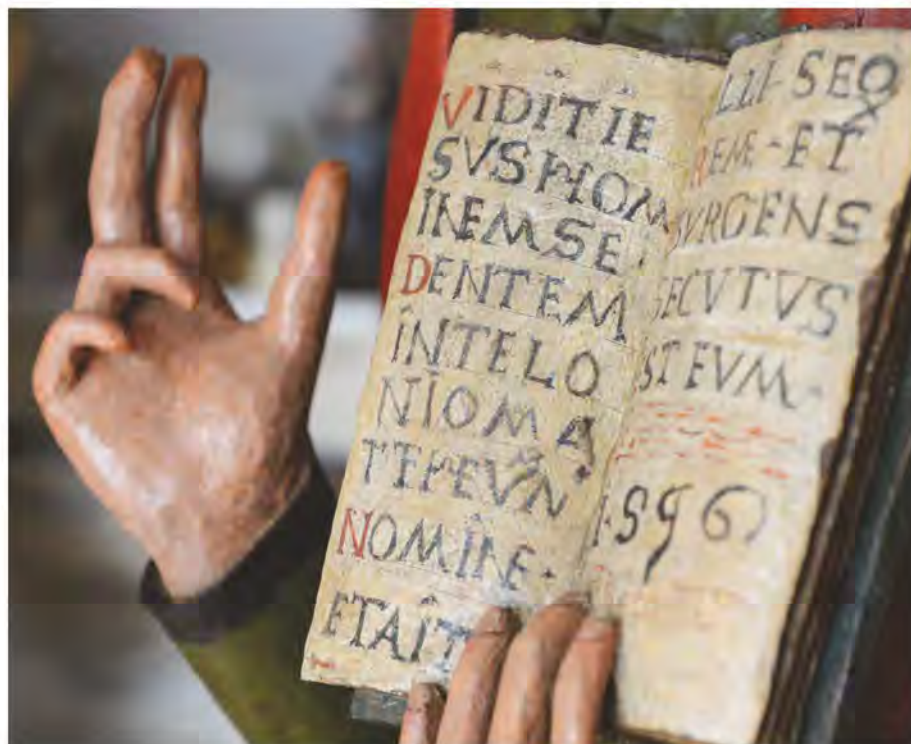 VIDIT IE
SVS HOM
INEM SE
DENTEM
IN TELO
NIO MA
TTEPEVN
NOMINE·
ET AIT
ILLI·SEQ
REME-ET
SVRGENS
SECVTVS
ST EVM·
1596